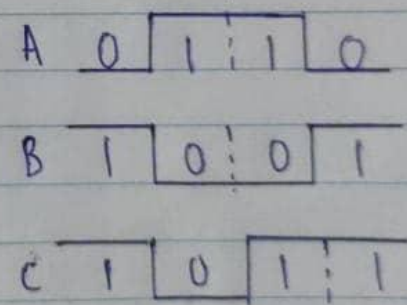 A 0 1 1 0
B 1 0 0 1
C 1 0 1 1